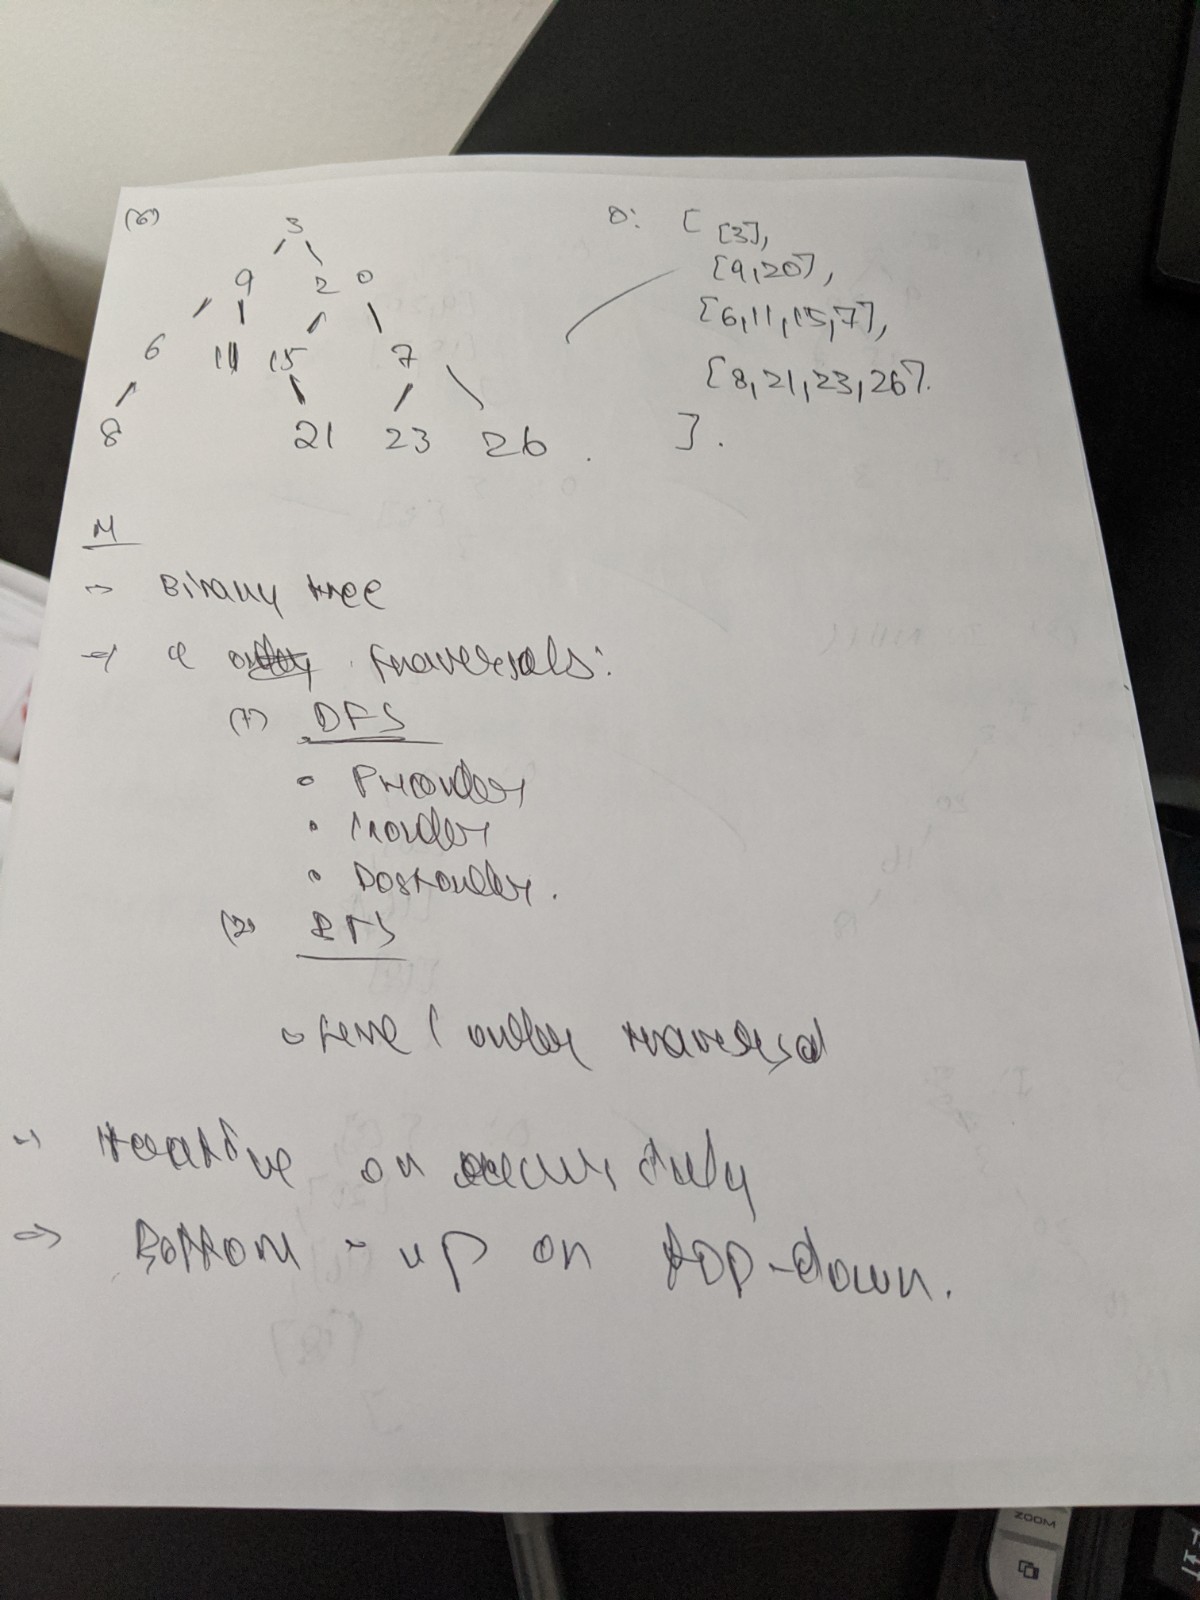 (6)
3
9 20
6 11 15 7
8 21 23 26 .
O: [ [3],
[9,20],
[6,11,15,7],
[8,21,23,26].
].
M
→ Binary tree
→ traversals:
(1) DFS
• Preorder
• Inorder
• Postorder.
(2) BFS
• level order traversal
→ Iterative or recursively
⇒ Bottom-up or top-down.
ZOOM